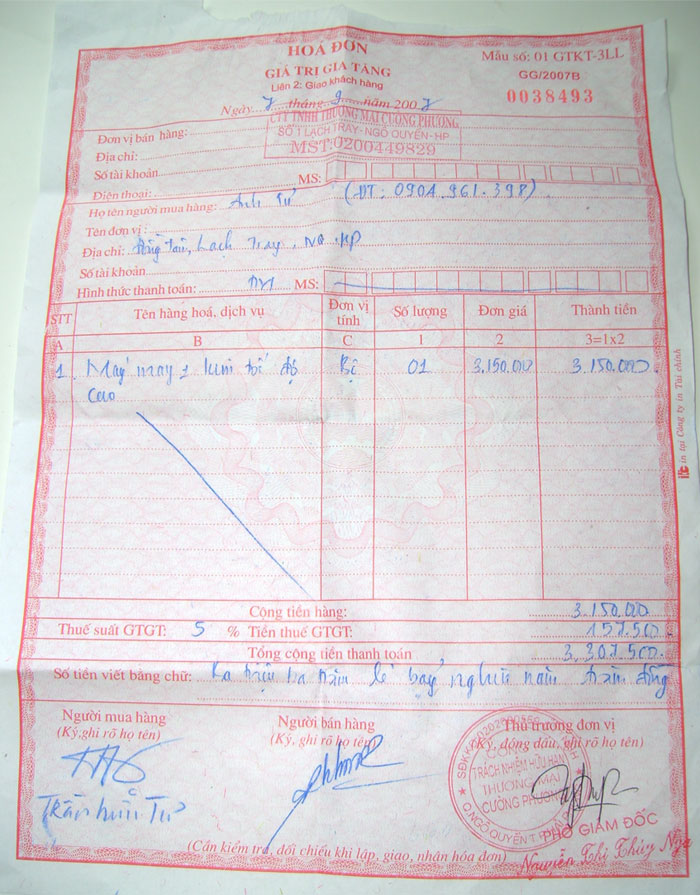 HOÁ ĐƠN
GIÁ TRỊ GIA TĂNG
Liên 2: Giao khách hàng
Mẫu số: 01 GTKT-3LL
GG/2007B
0038493
Ngày 7 tháng 9 năm 2007
CTY TNHH THƯƠNG MẠI CƯỜNG PHƯƠNG
SỐ 1 LẠCH TRAY - NGÔ QUYỀN - HP
MST: 0200449829
Đơn vị bán hàng:
Địa chỉ:
Số tài khoản
Điện thoại: MS:
Họ tên người mua hàng: Anh Tử (ĐT: 0904.961.398)
Tên đơn vị:
Địa chỉ: Lạch Tray, NQ, HP
Số tài khoản
Hình thức thanh toán: TM MS:
STT Tên hàng hoá, dịch vụ Đơn vị tính Số lượng Đơn giá Thành tiền
A B C 1 2 3=1x2
1. Máy may 1 kim tốc độ Bộ 01 3.150.000 3.150.000
cao
in tại Công ty in Tài chính
Cộng tiền hàng: 3.150.000
Thuế suất GTGT: 5 % Tiền thuế GTGT: 157.500
Tổng cộng tiền thanh toán 3.307.500
Số tiền viết bằng chữ: Ba triệu ba trăm lẻ bảy nghìn năm trăm đồng
Người mua hàng Người bán hàng Thủ trưởng đơn vị
(Ký, ghi rõ họ tên) (Ký, ghi rõ họ tên) (Ký, đóng dấu, ghi rõ họ tên)
TRÁCH NHIỆM HỮU HẠN
THƯƠNG MẠI
CƯỜNG PHƯƠNG
Q. NGÔ QUYỀN
Trần Hữu Tử
PHÓ GIÁM ĐỐC
(Cần kiểm tra, đối chiếu khi lập, giao, nhận hóa đơn)
Nguyễn Thị Thúy Nga